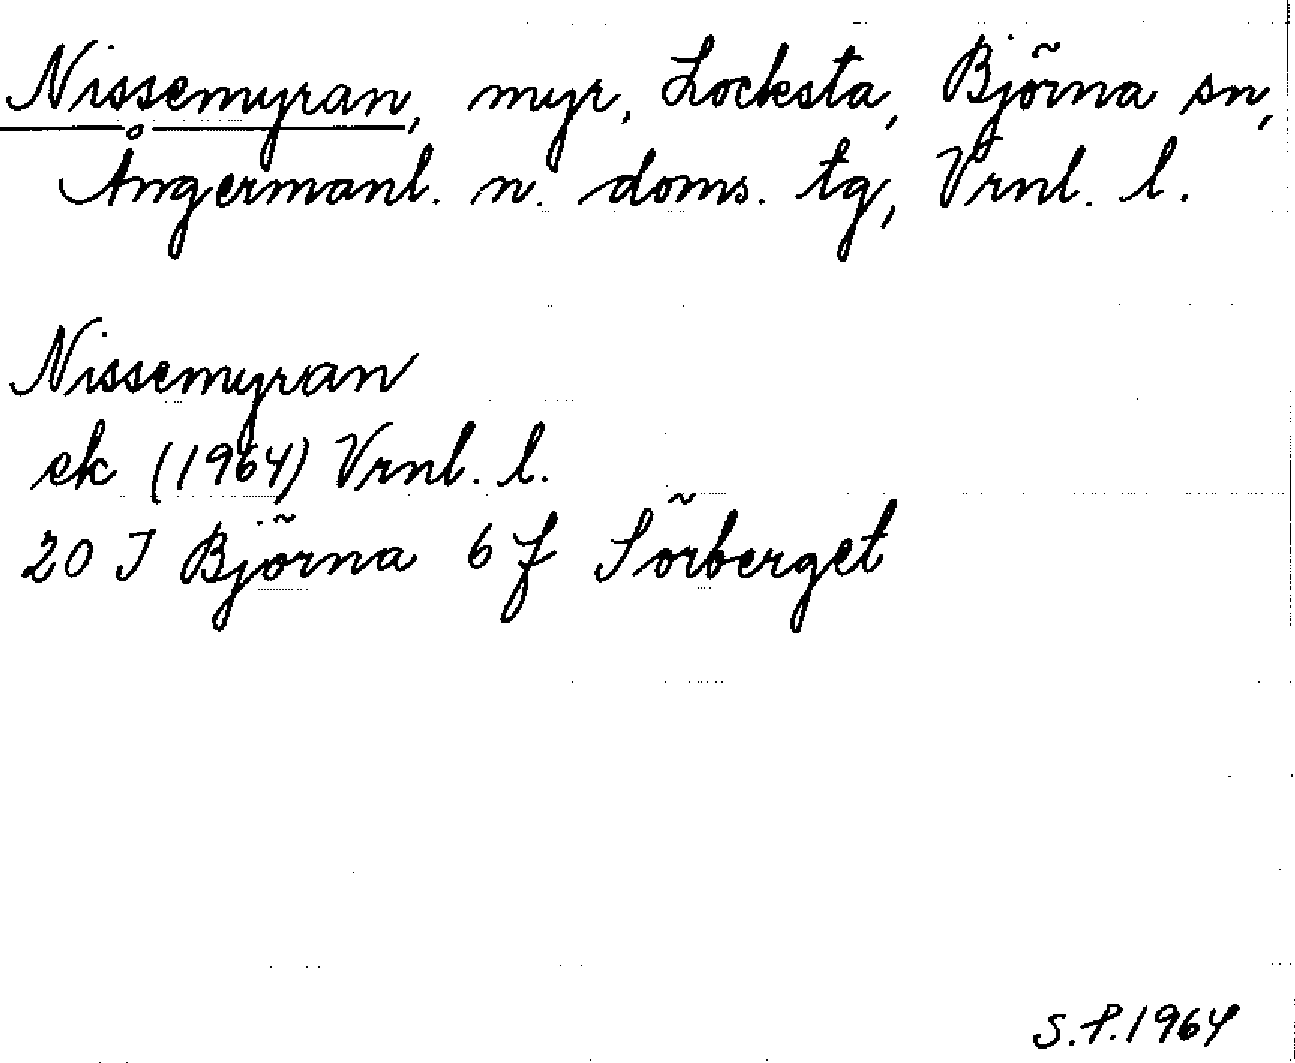 Nissemyran, myr, Locksta, Björna sn,
Ångermanl. n. doms. tg, Vrnl. l.
Nissemyran
ek (1964) Vrnl. l.
20 I Björna 6 f Sörberget
S.P.1964